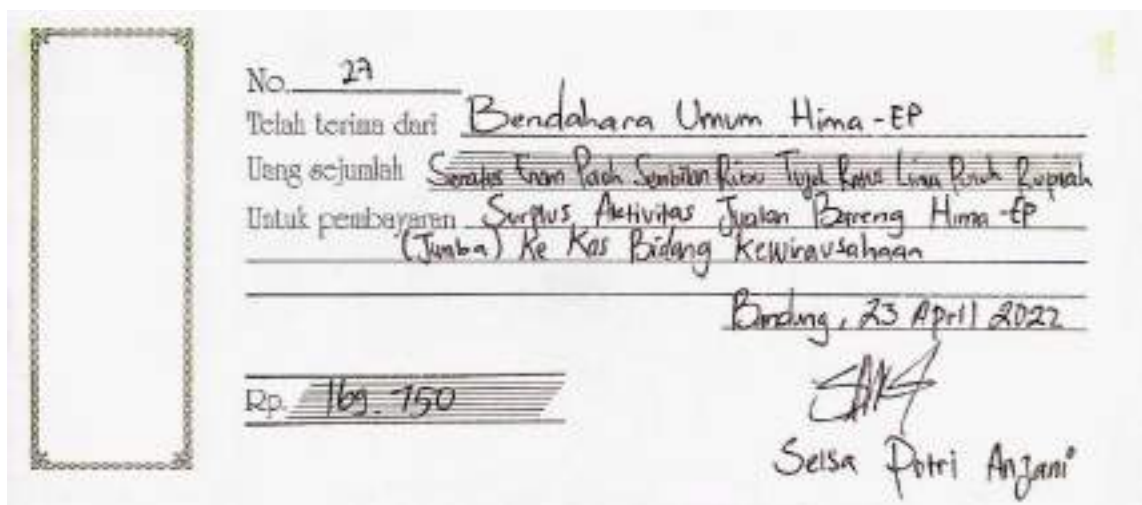 No. 27
Telah terima dari Bendahara Umum Hima-EP
Uang sejumlah Seratus Enam Puluh Sembilan Ribu Tujuh Ratus Lima Puluh Rupiah
Untuk pembayaran Surplus Aktivitas Jualan Bareng Hima-EP
(Jumba) Ke Kas Bidang Kewirausahaan
Bandung, 23 April 2022
Rp. 169.750
Selsa Putri Anjani